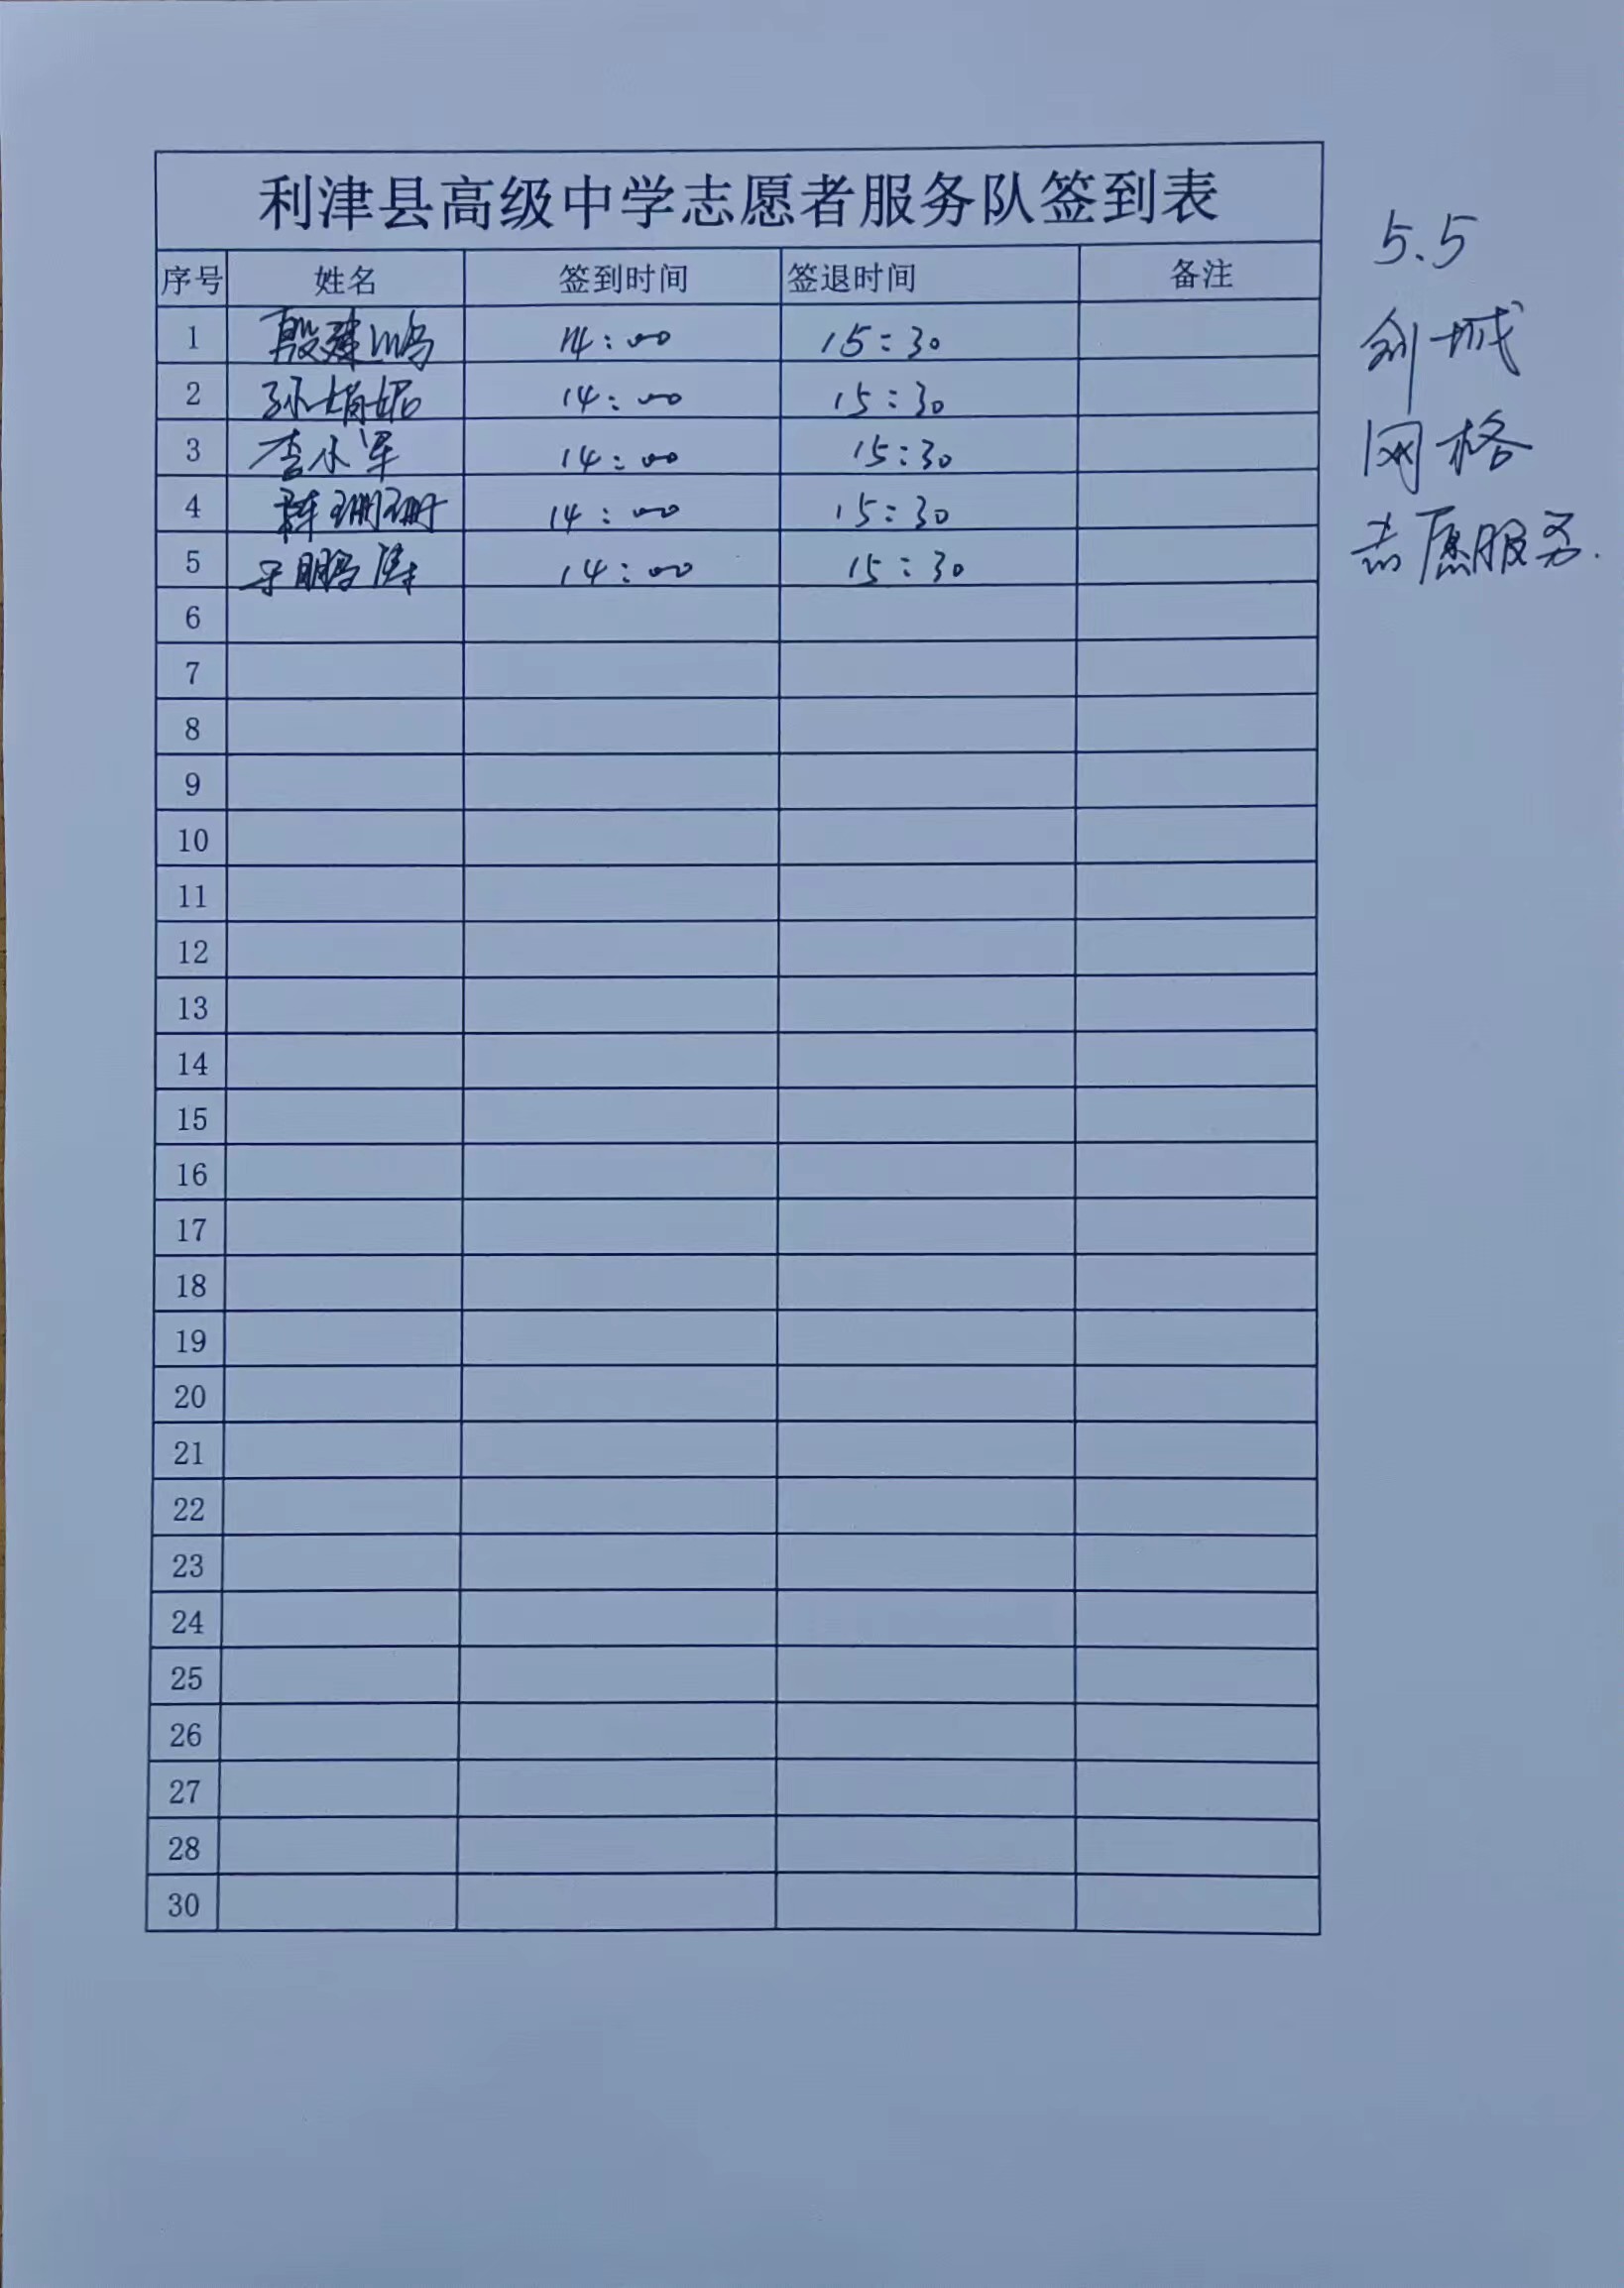 利津县高级中学志愿者服务队签到表
序号 姓名 签到时间 签退时间 备注
1 殷建鹏 14:00 15:30
2 孙娟妮 14:00 15:30
3 李小军 14:00 15:30
4 韩珊珊 14:00 15:30
5 于鹏涛 14:00 15:30
6
7
8
9
10
11
12
13
14
15
16
17
18
19
20
21
22
23
24
25
26
27
28
30
5.5
创城
网格
志愿服务.